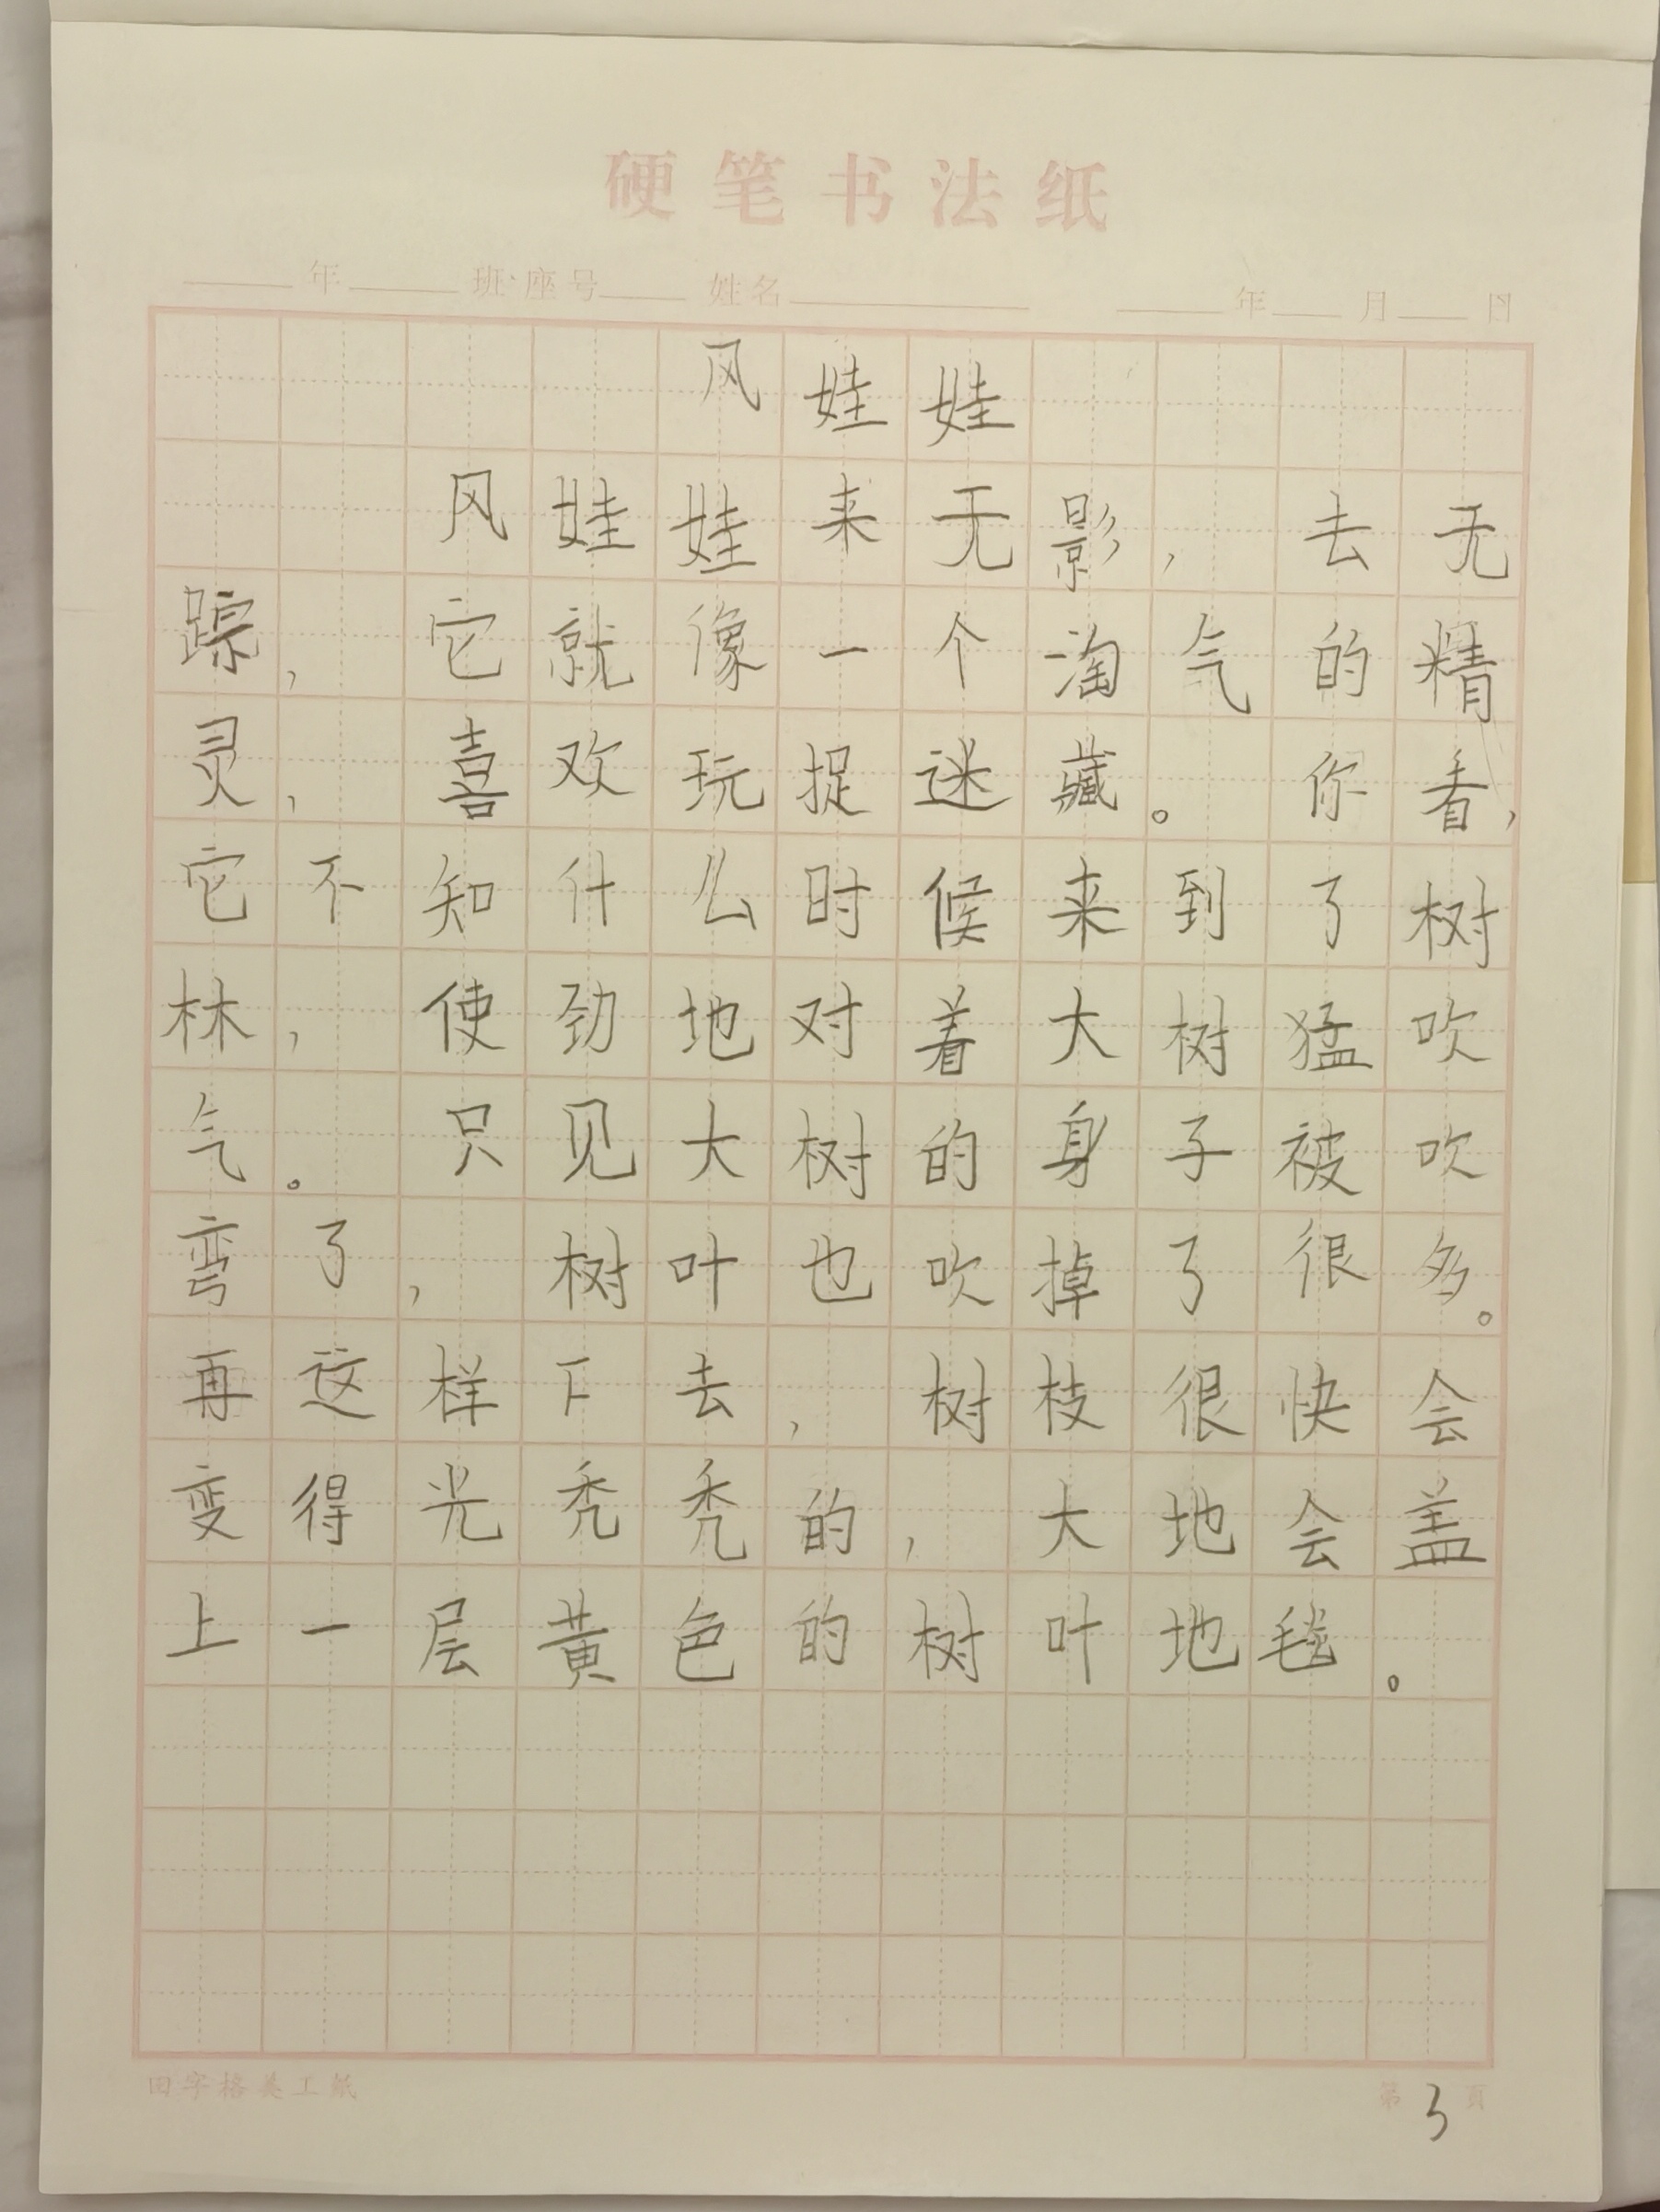 硬笔书法纸
年 班 座号 姓名 年 月 日
风娃娃
风娃娃来无影，去无
踪，它就像一个淘气的精
灵，喜欢玩捉迷藏。你看，
它不知什么时候来到了树
林，使劲地对着大树猛吹
气。只见大树的身子被吹
弯了，树叶也吹掉了很多。
再这样下去，树枝很快会
变得光秃秃的，大地会盖
上一层黄色的树叶地毯。
田字格美工纸 第3页